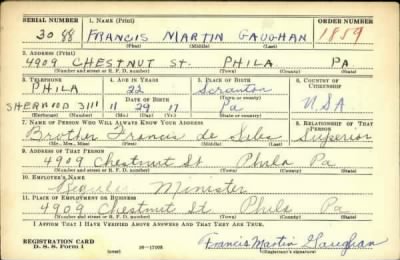 SERIAL NUMBER 1. NAME (Print) ORDER NUMBER
3088 FRANCIS MARTIN GAUGHAN 1859
(First) (Middle) (Last)
2. ADDRESS (Print)
4909 CHESTNUT St. PHILA PA
(Number and street or R. F. D. number) (Town) (County) (State)
3. TELEPHONE 4. AGE IN YEARS 5. PLACE OF BIRTH 6. COUNTRY OF CITIZENSHIP
PHILA 22 Scranton
DATE OF BIRTH (Town or county)
SHERWOOD 3111 11 29 17 Pa USA
(Exchange) (Number) (Mo.) (Day) (Yr.) (State or country)
7. NAME OF PERSON WHO WILL ALWAYS KNOW YOUR ADDRESS 8. RELATIONSHIP OF THAT PERSON
Brother Francis de Sales Superior
(Mr., Mrs., Miss) (First) (Middle) (Last)
9. ADDRESS OF THAT PERSON
4909 Chestnut St Phila Pa
(Number and street or R. F. D. number) (Town) (County) (State)
10. EMPLOYER'S NAME
Regular Minister
11. PLACE OF EMPLOYMENT OR BUSINESS
4909 Chestnut St. Phila Pa
(Number and street or R. F. D. number) (Town) (County) (State)
I AFFIRM THAT I HAVE VERIFIED ABOVE ANSWERS AND THAT THEY ARE TRUE.
REGISTRATION CARD
D. S. S. Form 1 (over) Francis Martin Gaughan
(Registrant's signature)